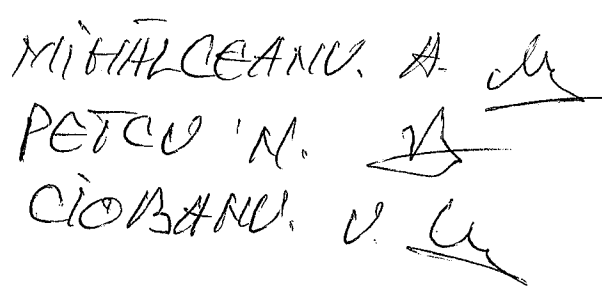 MIHĂLCEANU. A.
PETCU N.
CIOBANU. V.